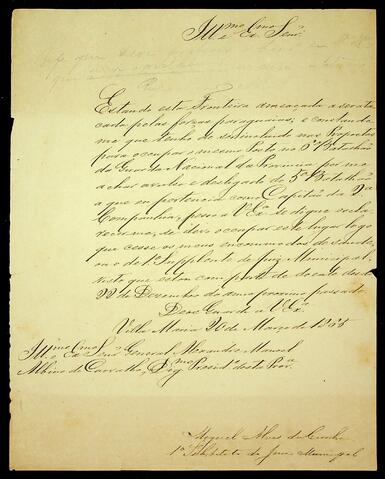 Ill.mo e Ex.mo Senr.
Estando esta Fronteira ameaçada a ser ata
cada pelas forças paraguaias, e constando
me que tenho de ser incluido nas Propostas
para occupar o mesmo Posto no 6º Batalhão
da Guarda Nacional da Provincia por me
achar avulso e desligado do 5º Batalhão
a que eu pertencia como Capitão da 2ª
Companhia, peço a V Ex.ª se digne escla
recer-me, se devo occupar este lugar logo
que cesse os meus encommodos de saude,
ou o de 1º Supplente de Juiz Municipal,
visto que estou com parte de doente desde
22 de Dezembro do anno proximo passado.
Deos Guarde a V Ex.ª
Villa Maria 20 de Março de 1865
Ill.mo e Ex.mo Senr General Alexandre Manoel
Albino de Carvalho, Dig.mo Presid.e desta Prov.ª
Miguel Alves da Cunha
1º Substituto do Juiz Municipal